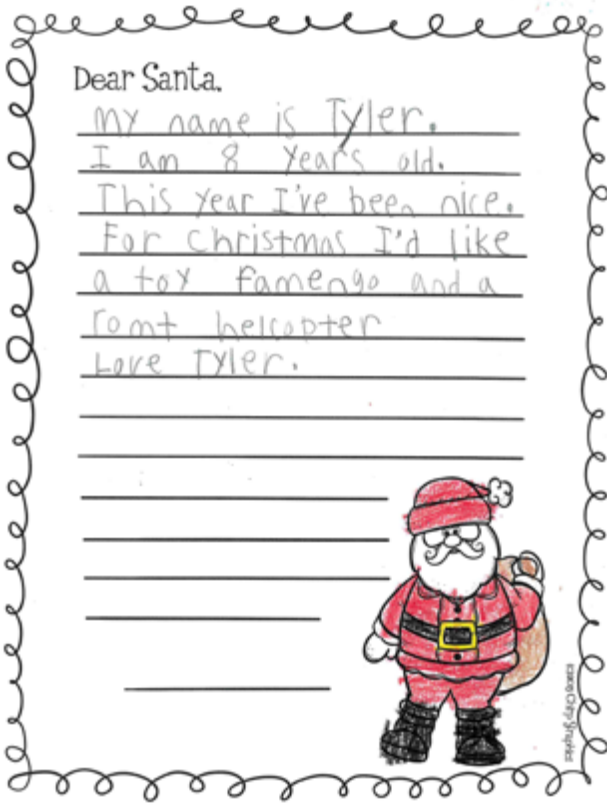 Dear Santa,
My name is Tyler.
I am 8 years old.
This year I've been nice.
For christmas I'd like
a toy famengo and a
romt helcopter
Love Tyler.
Graphics